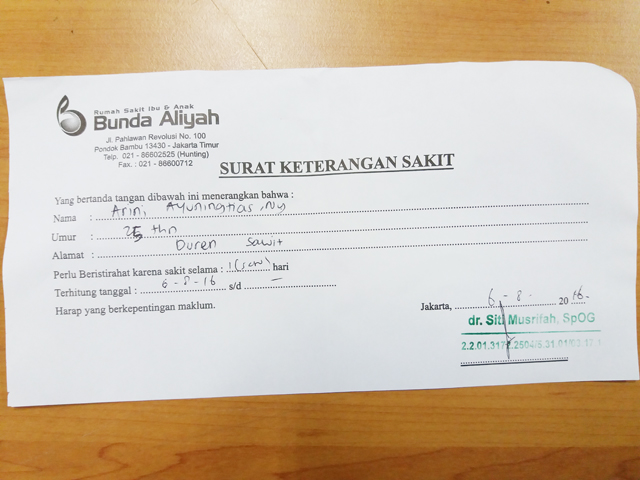 Rumah Sakit Ibu & Anak
Bunda Aliyah
Jl. Pahlawan Revolusi No. 100
Pondok Bambu 13430 - Jakarta Timur
Telp. 021 - 86602525 (Hunting)
Fax. : 021 - 86600712
SURAT KETERANGAN SAKIT
Yang bertanda tangan dibawah ini menerangkan bahwa :
Nama : Arini Ayuningtias, Ny
Umur : 25 thn
Alamat : Duren Sawit
Perlu Beristirahat karena sakit selama : 1 (satu) hari
Terhitung tanggal : 6 - 8 - 16 s/d —
Harap yang berkepentingan maklum.
Jakarta, 6 - 8 - 2016.
dr. Siti Musrifah, SpOG